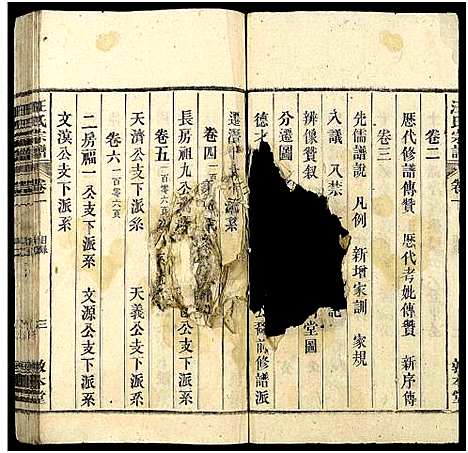 汪氏宗譜
卷一
敦本堂
卷二
歷代修譜傳贊 歷代考妣傳贊 新序傳
卷三
先儒譜說 凡例 新增家訓 家規
八議 八禁 記
辨像贊叙 堂圖
分遷圖
德才 公裔前修譜派
遷
卷四
長房祖九公 支下派系
卷五 一百零六頁
天濟公支下派系 天義公支下派系
卷六 一百零六頁
二房福一公支下派系 文源公支下派系
文漢公支下派系
汪氏宗譜
卷一
目錄
三
敦本堂